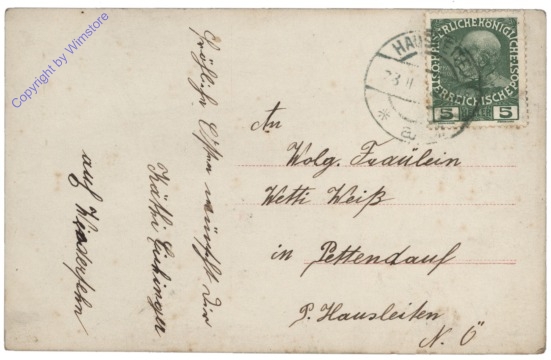 Copyright by Wimstore
Fröhliche Ostern wünscht Dir
Käthi
auf Wiedersehn
HAUS
23
KAISERLICHE KÖNIGLICHE
ÖSTERREICHISCHE POST
5 HELLER 5
An
Wolg. Fräulein
Wetti Weiß
in Pettendauf
P. Hausleiten
N. Ö